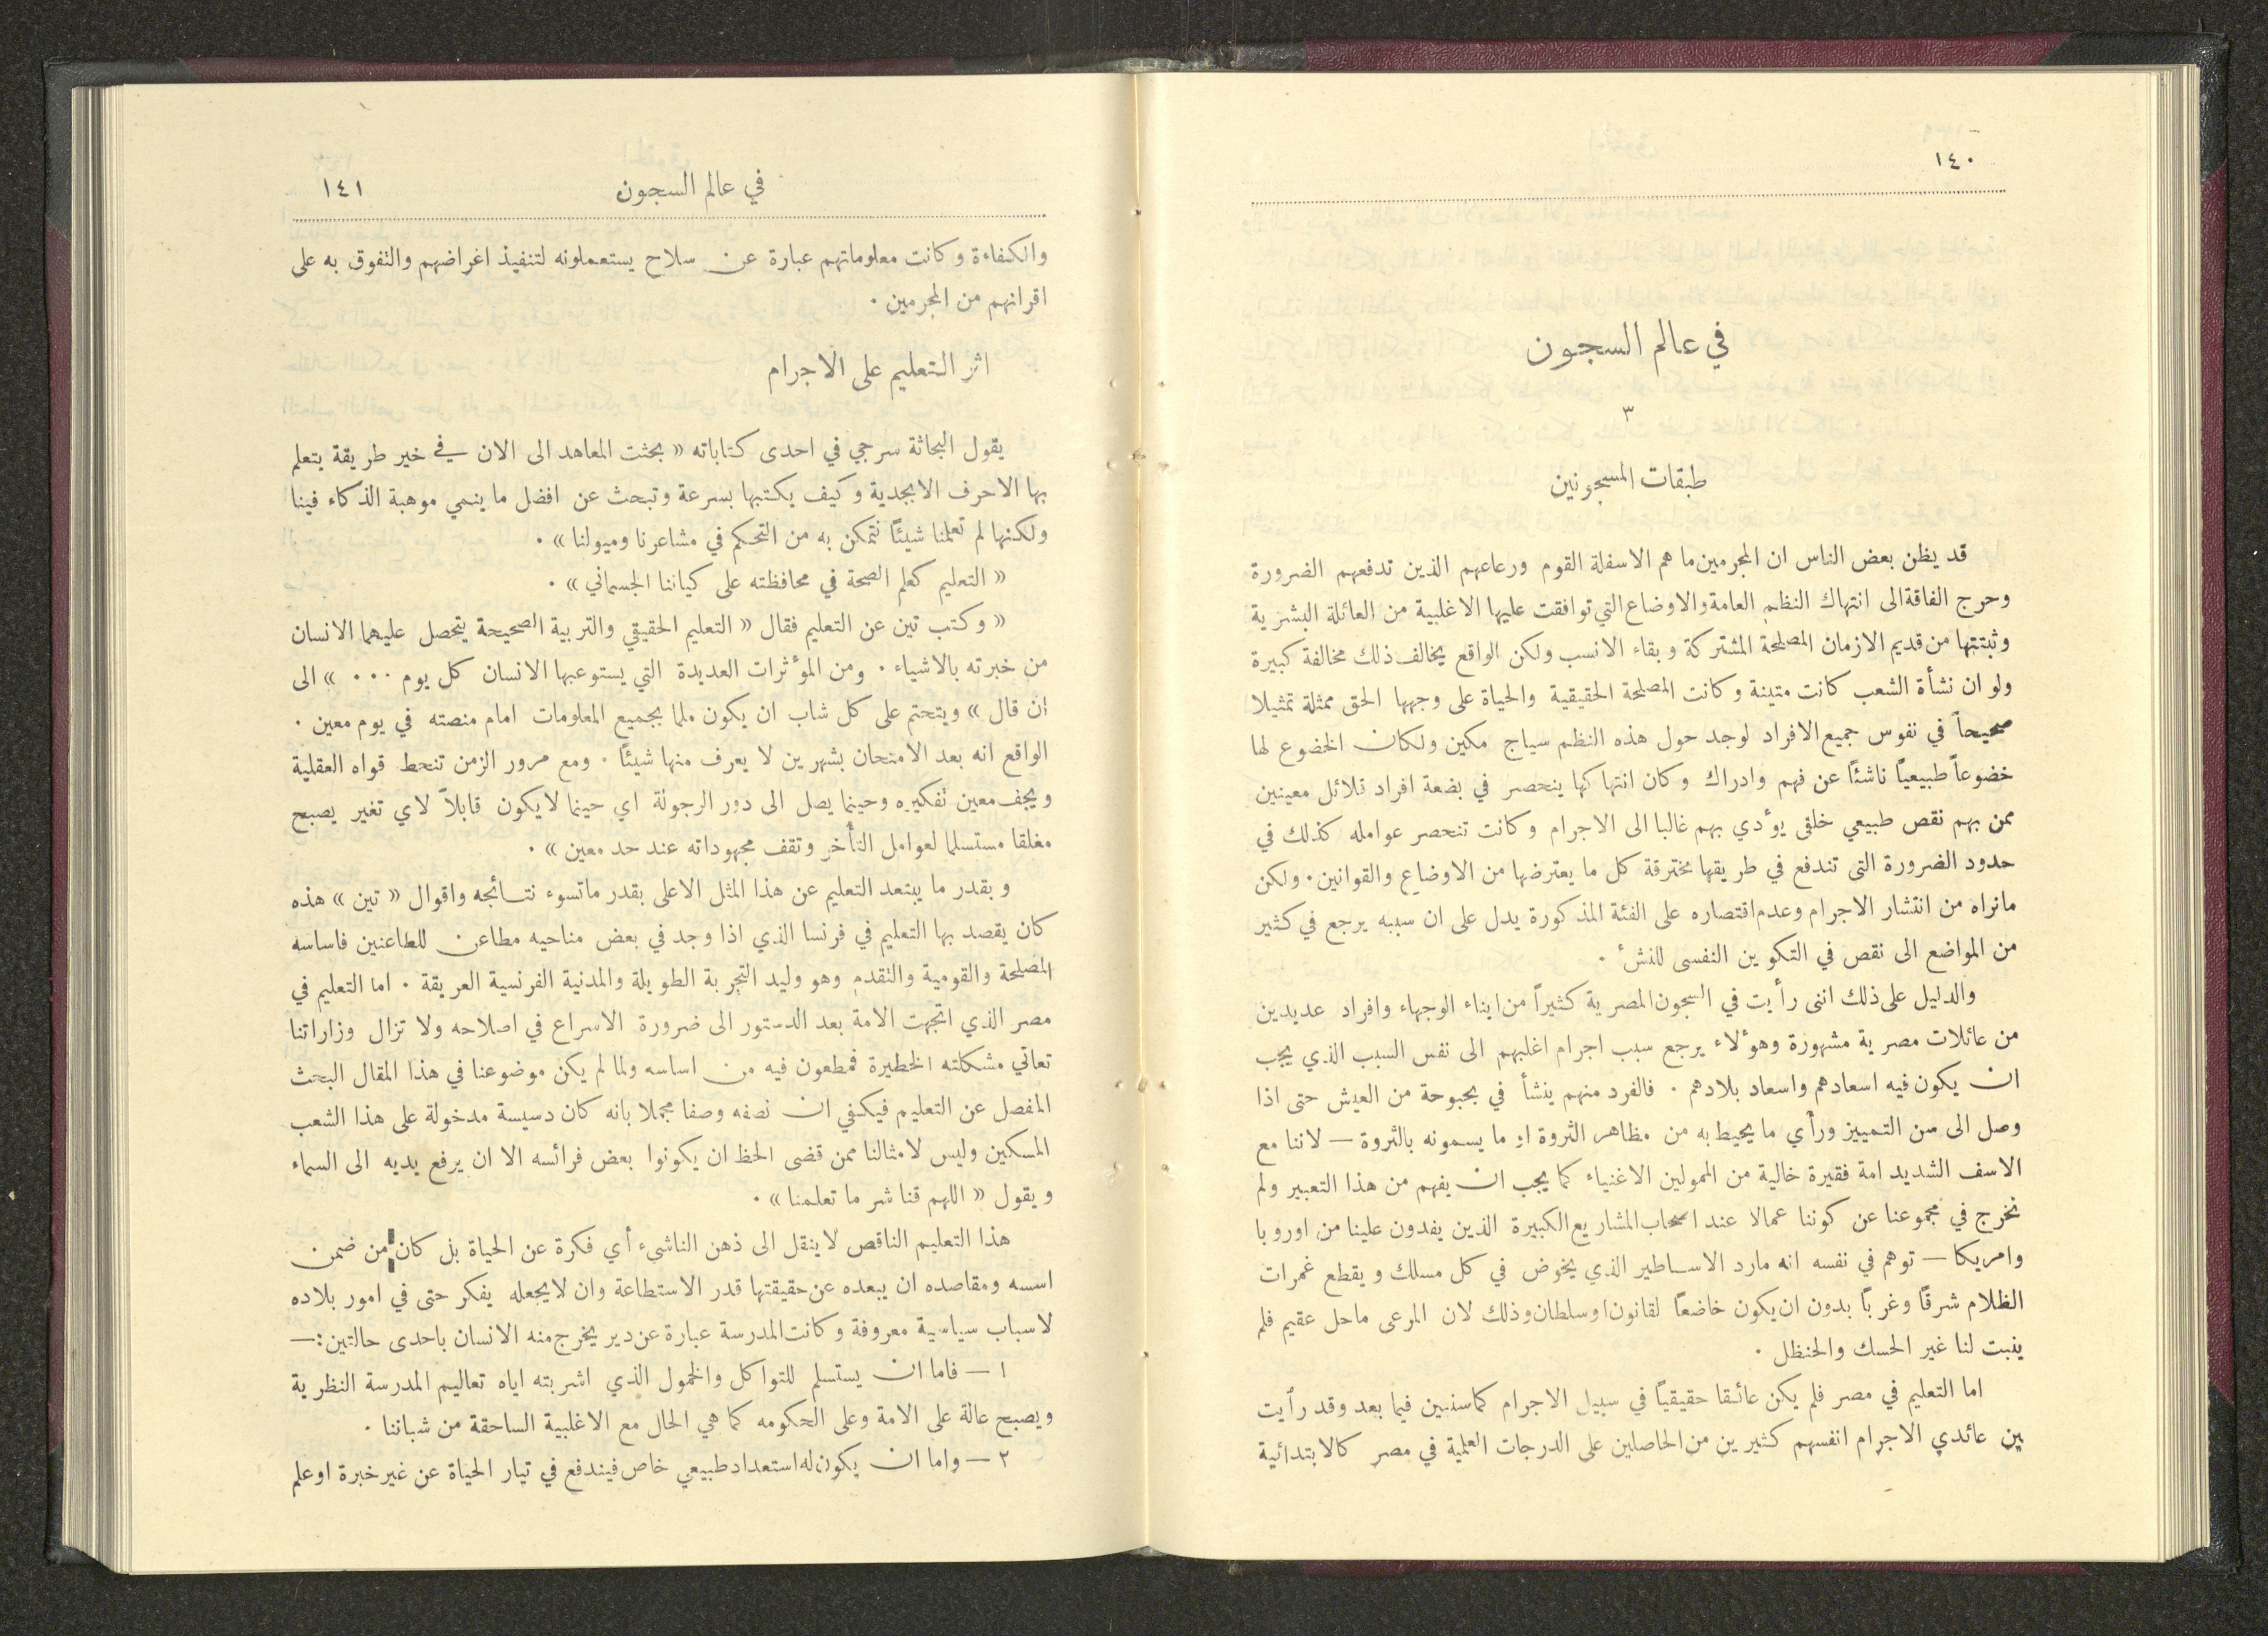 ١٤٠
في عالم السجون
٣
طبقات المسجونين
قد يظن بعض الناس ان المجرمين ما هم الاسفلة القوم ورعاعهم الذين تدفعهم الضرورة
وحرج الفاقة الى انتهاك النظم العامة والاوضاع التي توافقت عليها الاغلبية من العائلة البشرية
وثبتتها من قديم الازمان المصلحة المشتركة وبقاء الانسب ولكن الواقع يخالف ذلك مخالفة كبيرة
ولو ان نشأة الشعب كانت متينة وكانت المصلحة الحقيقية والحياة على وجهها الحق ممثلة تمثيلا
صحيحاً في نفوس جميع الافراد لوجد حول هذه النظم سياج مكين ولكان الخضوع لها
خضوعاً طبيعياً ناشئاً عن فهم وادراك وكان انتهاكها ينحصر في بضعة افراد قلائل معينين
ممن بهم نقص طبيعي خلقى يؤدي بهم غالبا الى الاجرام وكانت تنحصر عوامله كذلك في
حدود الضرورة التى تندفع في طريقها مخترقة كل ما يعترضها من الاوضاع والقوانين . ولكن
مانراه من انتشار الاجرام وعدم اقتصاره على الفئة المذكورة يدل على ان سببه يرجع في كثير
من المواضع الى نقص في التكوين النفسى للنشء .
والدليل على ذلك اننى رأيت في السجون المصرية كثيراً من ابناء الوجهاء وافراد عديدين
من عائلات مصرية مشهورة وهؤلاء يرجع سبب اجرام اغلبهم الى نفس السبب الذي يجب
ان يكون فيه اسعادهم واسعاد بلادهم . فالفرد منهم ينشأ في بحبوحة من العيش حتى اذا
وصل الى سن التمييز ورأي ما يحيط به من مظاهر الثروة او ما يسمونه بالثروة — لاننا مع
الاسف الشديد امة فقيرة خالية من الممولين الاغنياء كما يجب ان يفهم من هذا التعبير ولم
نخرج في مجموعنا عن كوننا عمالا عند اصحاب المشاريع الكبيرة الذين يفدون علينا من اوروبا
وامريكا — توهم في نفسه انه مارد الاساطير الذي يخوض في كل مسلك ويقطع غمرات
الظلام شرقاً وغرباً بدون ان يكون خاضعاً لقانون او سلطان وذلك لان المرعى ماحل عقيم فلم
ينبت لنا غير الحسك والحنظل .
اما التعليم في مصر فلم يكن عائقا حقيقياً في سبيل الاجرام كما سنبين فيما بعد وقد رأيت
بين عائدي الاجرام انفسهم كثيرين من الحاصلين على الدرجات العلمية في مصر كالابتدائية
في عالم السجون
١٤١
والكفاءة وكانت معلوماتهم عبارة عن سلاح يستعملونه لتنفيذ اغراضهم والتفوق به على
اقرانهم من المجرمين .
اثر التعليم على الاجرام
يقول البحاثة سرجي في احدى كتاباته « بحثت المعاهد الى الان في خير طريقة يتعلم
بها الاحرف الابجدية وكيف يكتبها بسرعة وتبحث عن افضل ما ينمي موهبة الذكاء فينا
ولكنها لم تعلمنا شيئاً نتمكن به من التحكم في مشاعرنا وميولنا » .
« التعليم كعلم الصحة في محافظته على كياننا الجسماني » .
« وكتب تين عن التعليم فقال « التعليم الحقيقي والتربية الصحيحة يتحصل عليهما الانسان
من خبرته بالاشياء . ومن المؤثرات العديدة التي يستوعبها الانسان كل يوم ... » الى
ان قال » ويتحتم على كل شاب ان يكون ملما بجميع المعلومات امام منصته في يوم معين .
الواقع انه بعد الامتحان بشهرين لا يعرف منها شيئاً . ومع مرور الزمن تنحط قواه العقلية
ويجف معين تفكيره وحينما يصل الى دور الرجولة اي حينما لا يكون قابلاً لاي تغير يصبح
مغلقا مستسلما لعوامل التأخر وتقف مجهوداته عند حد معين » .
وبقدر ما يبتعد التعليم عن هذا المثل الاعلى بقدر ماتسوء نتائجه واقوال « تين » هذه
كان يقصد بها التعليم في فرنسا الذي اذا وجد في بعض مناحيه مطاعن للطاعنين فاساسه
المصلحة والقومية والتقدم وهو وليد التجربة الطويلة والمدنية الفرنسية العريقة . اما التعليم في
مصر الذي اتجهت الامة بعد الدستور الى ضرورة الاسراع في اصلاحه ولا تزال وزاراتنا
تعاني مشكلته الخطيرة فمطعون فيه من اساسه ولما لم يكن موضوعنا في هذا المقال البحث
المفصل عن التعليم فيكفي ان نصفه وصفا مجملا بانه كان دسيسة مدخولة على هذا الشعب
المسكين وليس لامثالنا ممن قضى الحظ ان يكونوا بعض فرائسه الا ان يرفع يديه الى السماء
ويقول « اللهم قنا شر ما تعلمنا » .
هذا التعليم الناقص لا ينقل الى ذهن الناشيء أي فكرة عن الحياة بل كان من ضمن
اسسه ومقاصده ان يبعده عن حقيقتها قدر الاستطاعة وان لا يجعله يفكر حتى في امور بلاده
لاسباب سياسية معروفة وكانت المدرسة عبارة عن دير يخرج منه الانسان باحدى حالتين : —
١ — فاما ان يستسلم للتواكل والخمول الذي اشربته اياه تعاليم المدرسة النظرية
ويصبح عالة على الامة وعلى الحكومه كما هي الحال مع الاغلبية الساحقة من شباننا .
٢ — واما ان يكون له استعداد طبيعي خاص فيندفع في تيار الحياة عن غير خبرة او علم